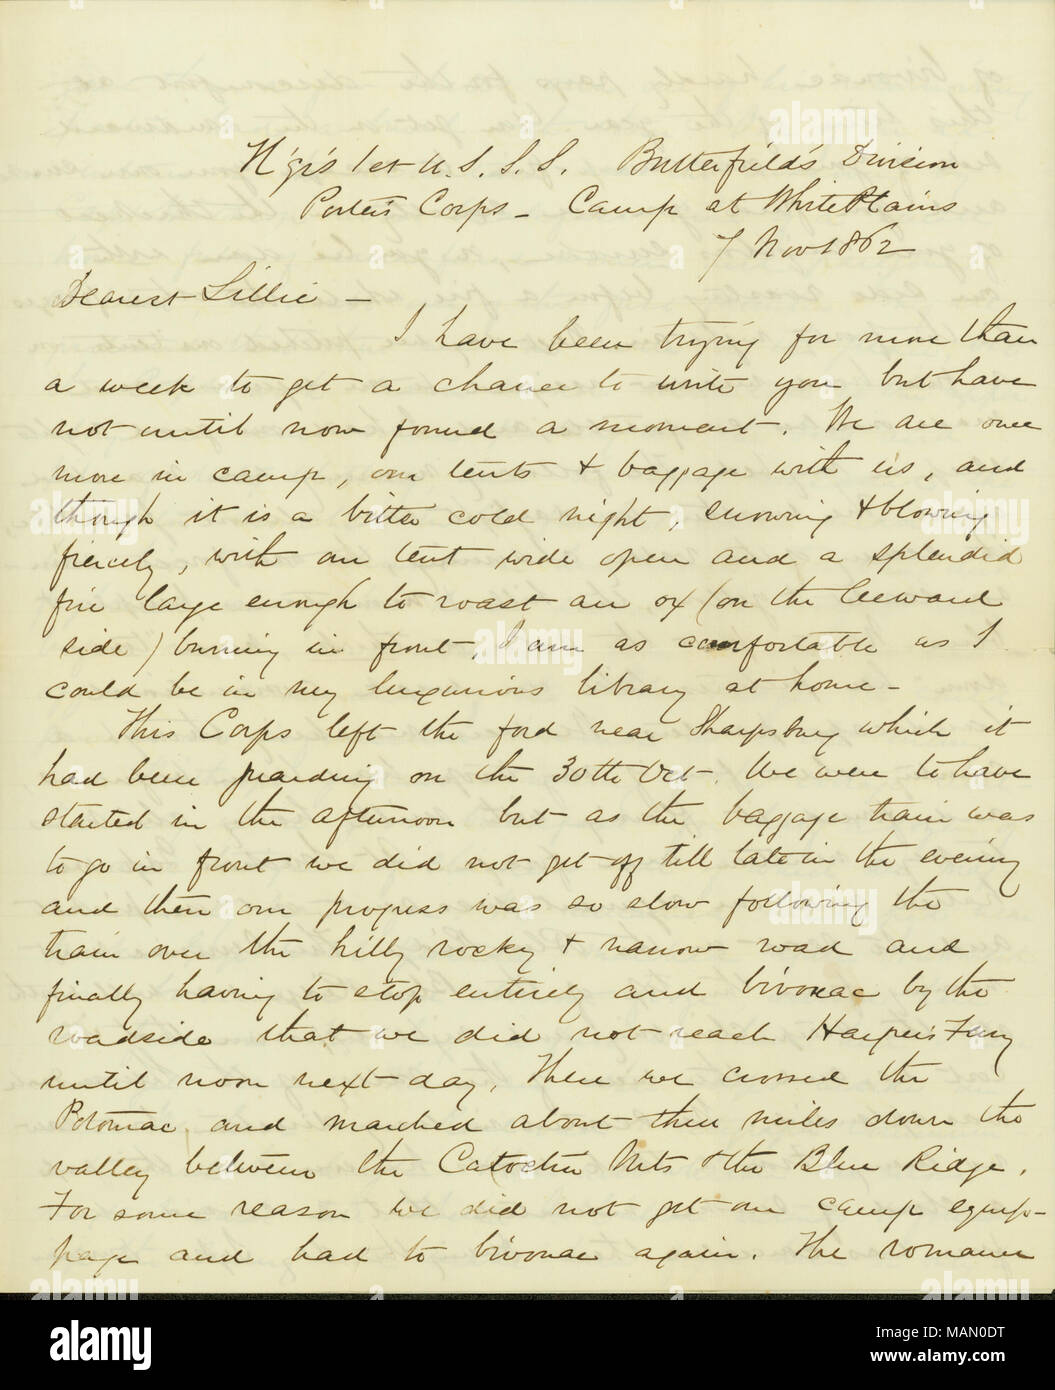 H'qr's 1st U.S.S.S. Butterfield's Division
Porter's Corps - Camp at White Plains
7 Nov 1862
Dearest Lillie -
I have been trying for more than
a week to get a chance to write you but have
not until now found a moment. We are once
more in camp, our tents & baggage with us, and
though it is a bitter cold night, snowing & blowing
fiercely, with our tent wide open and a splendid
fire large enough to roast an ox (on the leeward
side) burning in front, I am as comfortable as I
could be in my luxurious library at home -
This Corps left the ford near Sharpsburg which it
had been guarding on the 30th Oct. We were to have
started in the afternoon but as the baggage train was
to go in front we did not get off till late in the evening
and then our progress was so slow following the
train over the hilly rocky & narrow road and
finally having to stop entirely and bivouac by the
roadside that we did not reach Harper's Ferry
until noon next day. There we crossed the
Potomac and marched about three miles down the
valley between the Catoctin Mts & the Blue Ridge.
For some reason we did not get our camp equip-
page and had to bivouac again. The romance
alamy
Image ID: MAN0DT
www.alamy.com